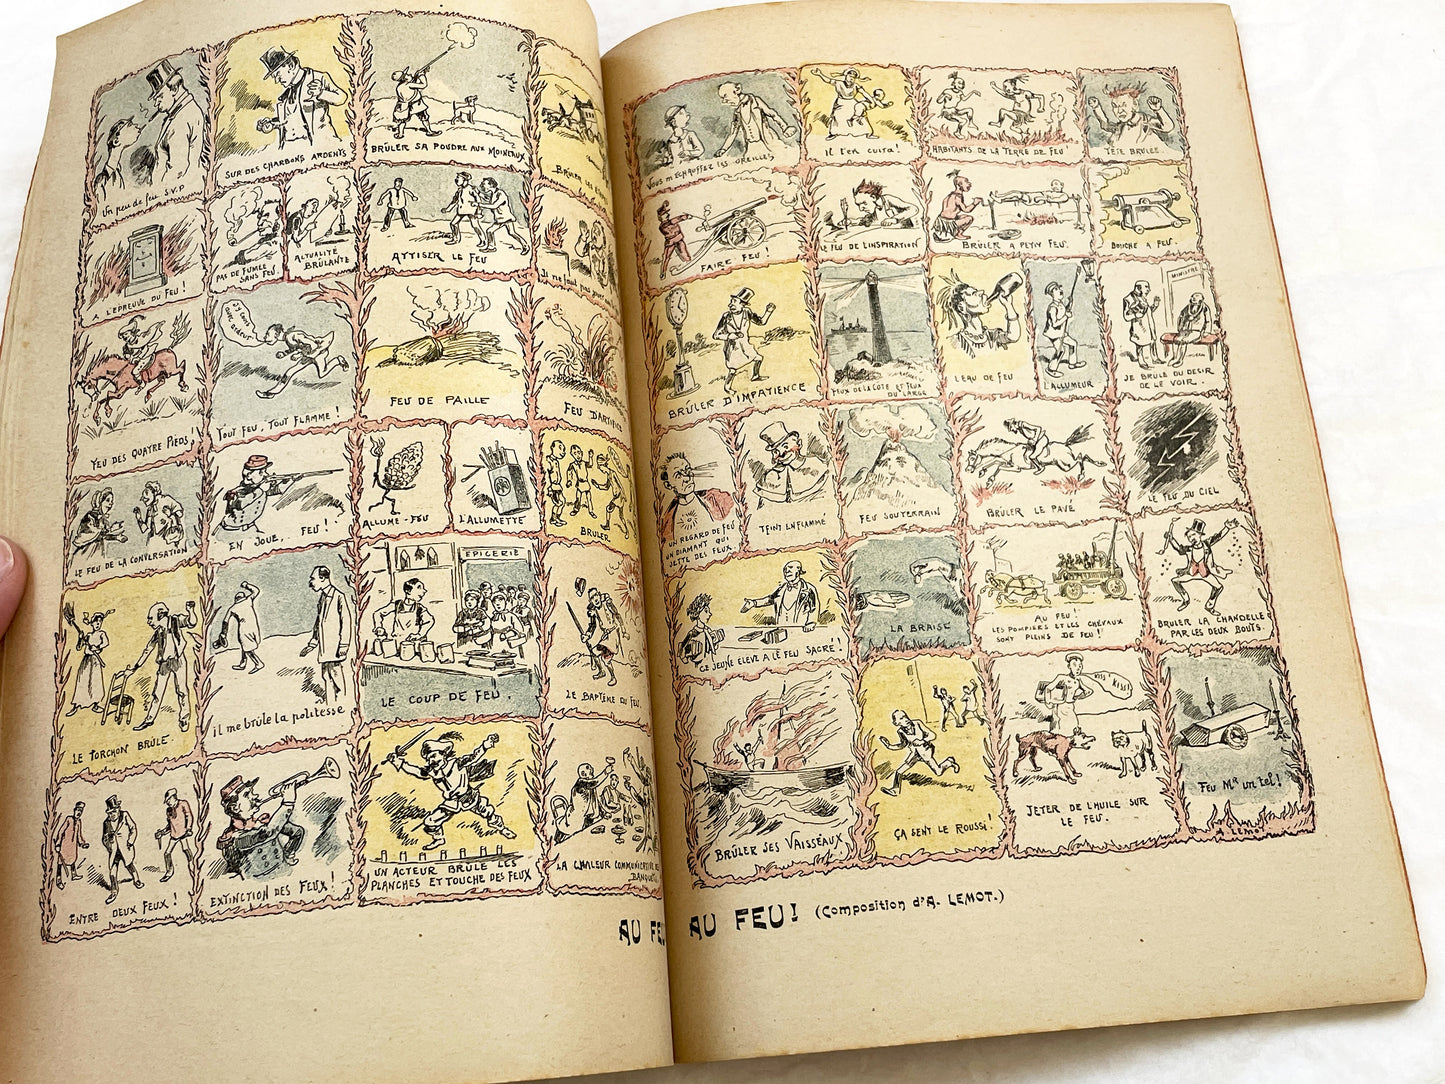 Un peu de feu S.V.P
SUR DES CHARBONS ARDENTS
BRÛLER SA POUDRE AUX MOINEAUX
BRÛLER LES
A L'EPREUVE DU FEU !
PAS DE FUMÉE
SANS FEU.
ACTUALITÉ
BRÛLANTE
ATTISER LE FEU
Il ne faut pas jouer
FEU DES QUATRE PIEDS !
TOUT FEU, TOUT FLAMME !
FEU DE PAILLE
FEU D'ARTIFICE
LE FEU DE LA CONVERSATION !
EN JOUE.. FEU !..
ALLUME-FEU
L'ALLUMETTE
BRULER
LE TORCHON BRÛLE.
il me brûle la politesse
EPICERIE
LE COUP DE FEU.
LE BAPTÊME DU FEU.
ENTRE DEUX FEUX !
EXTINCTION DES FEUX !
UN ACTEUR BRÛLE LES
PLANCHES ET TOUCHE DES FEUX
LA CHALEUR COMMUNICATIVE DES
BANQUETS
AU FE
VOUS M'ECHAUFFEZ LES OREILLES
il t'en cuira !
HABITANTS DE LA TERRE DE FEU
TÊTE BRÛLÉE.
FAIRE FEU !
LE FEU DE L'INSPIRATION
BRÛLER A PETIT FEU.
BOUCHE A FEU.
BRÛLER D'IMPATIENCE
FEUX DE LA CÔTE ET FEUX
DU LARGE
L'EAU DE FEU
L'ALLUMEUR
MINISTRE
JE BRÛLE DU DESIR
DE LE VOIR.
UN REGARD DE FEU
UN DIAMANT QUI
JETTE DES FEUX
TEINT ENFLAMMÉ
FEU SOUTERRAIN
BRÛLER LE PAVÉ
LE FEU DU CIEL
CE JEUNE ELEVE A LE FEU SACRÉ !
LA BRAISE
AU FEU !
LES POMPIERS ET LES CHEVAUX
SONT PLEINS DE FEU !
BRULER LA CHANDELLE
PAR LES DEUX BOUTS.
BRÛLER SES VAISSEAUX
ÇA SENT LE ROUSSI !
KISS KISS !
JETER DE L'HUILE SUR
LE FEU.
FEU Mr UN TEL !
A. LEMOT
AU FEU! (Composition d'A. LEMOT.)